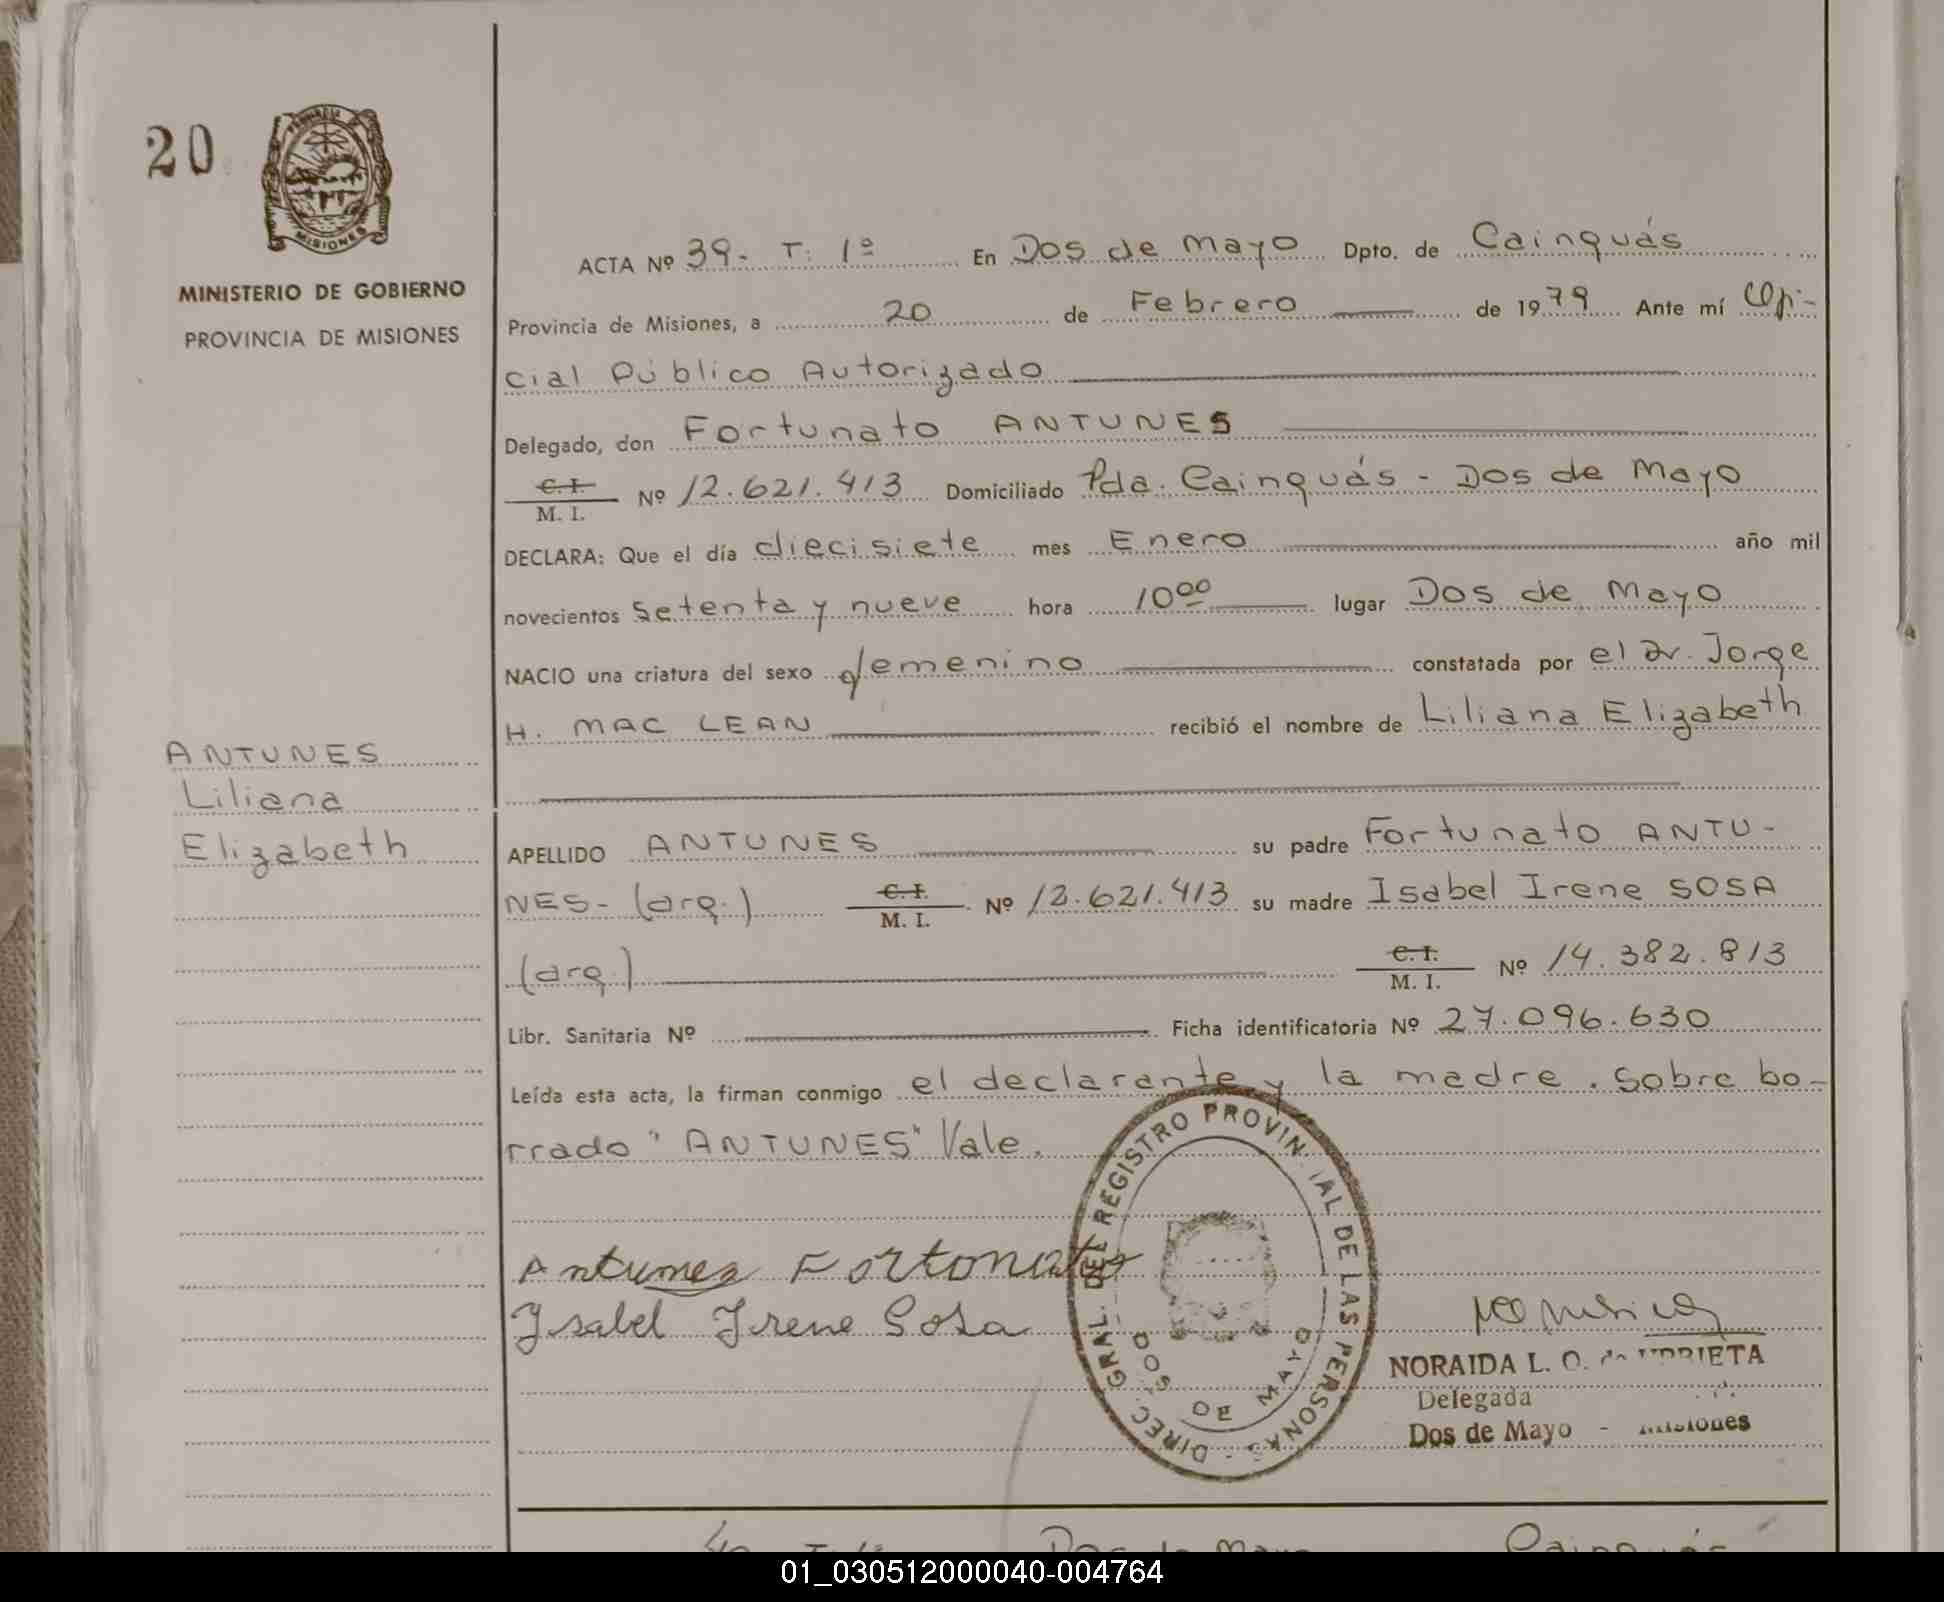 20
PROVINCIA DE
MISIONES
MINISTERIO DE GOBIERNO
PROVINCIA DE MISIONES
ANTUNES
Liliana
Elizabeth
ACTA Nº 39- T: 1º En Dos de Mayo Dpto. de Cainguás
Provincia de Misiones, a 20 de Febrero de 1979 Ante mí Ofi-
cial Público Autorizado
Delegado, don Fortunato ANTUNES
C. I.
M. I. Nº 12.621.413 Domiciliado Pda. Cainguás - Dos de Mayo
DECLARA: Que el día diecisiete mes Enero año mil
novecientos setenta y nueve hora 10⁰⁰ lugar Dos de Mayo
NACIO una criatura del sexo femenino constatada por el Dr. Jorge
H. MAC LEAN recibió el nombre de Liliana Elizabeth
APELLIDO ANTUNES su padre Fortunato ANTU-
NES- (arg.) C. I.
M. I. Nº 12.621.413 su madre Isabel Irene SOSA
(arg.) C. I.
M. I. Nº 14.382.813
Libr. Sanitaria Nº Ficha identificatoria Nº 27.096.630
Leída esta acta, la firman conmigo el declarante y la madre. Sobre bo-
rrado "ANTUNES" Vale.
DIREC. GRAL. DEL REGISTRO PROVINCIAL DE LAS PERSONAS -
DOS DE MAYO
Antunez Fortonato
Ysabel Yrene Sosa
NORAIDA L. O. de URRIETA
Delegada
Dos de Mayo - Misiones
Dos de Mayo Cainguás
01_030512000040-004764